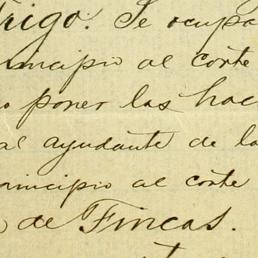 Trigo. Se ocupa
principio al corte
poner las hac
al ayudante de la
principio al corte
de Fincas.